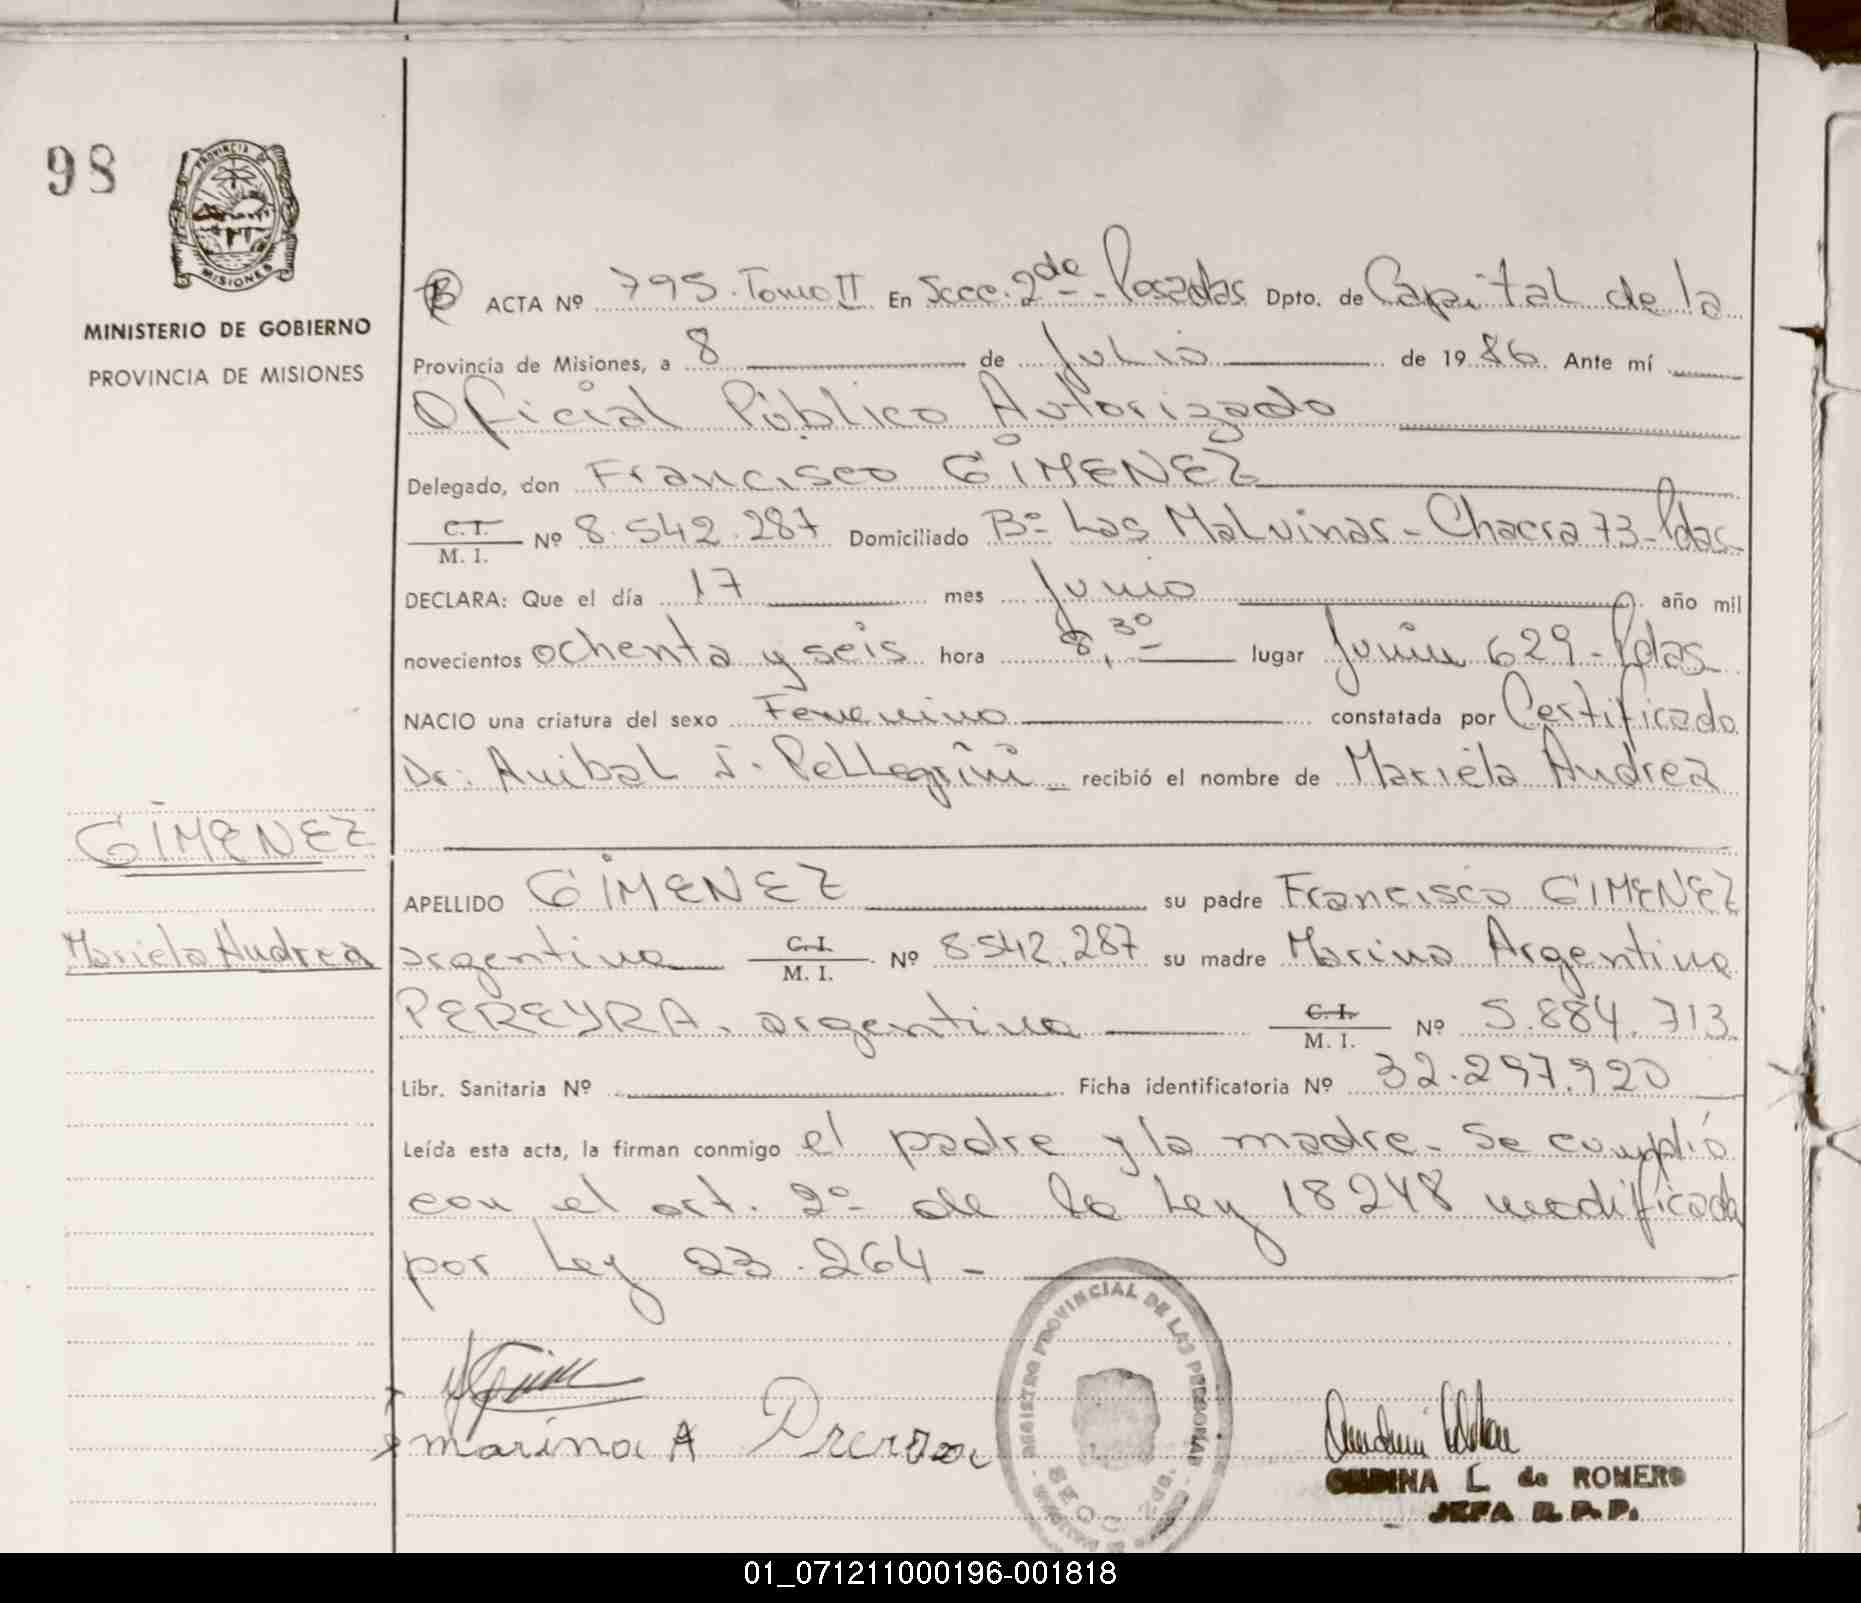 98
PROVINCIA DE
MISIONES
MINISTERIO DE GOBIERNO
PROVINCIA DE MISIONES
ACTA Nº 795. Tomo II En Secc. 2da - Posadas Dpto. de Capital de la
Provincia de Misiones, a 8 de Julio de 1986. Ante mí
Oficial Público Autorizado
Delegado, don Francisco GIMENEZ
C.I. M. I. Nº 8.542.287 Domiciliado Bº Las Malvinas - Chacra 73 - Pdas
DECLARA: Que el día 17 mes Junio año mil
novecientos ochenta y seis hora 8,30 lugar Junin 629 - Pdas
NACIO una criatura del sexo Femenino constatada por Certificado
Dr: Anibal J. Pellegrini recibió el nombre de Mariela Andrea
GIMENEZ
APELLIDO GIMENEZ su padre Francisco GIMENEZ
Mariela Andrea
argentino C.I. M. I. Nº 8.542.287 su madre Marina Argentina
PEREYRA, argentina C.I. M. I. Nº 5.884.713
Libr. Sanitaria Nº Ficha identificatoria Nº 32.297.920
Leída esta acta, la firman conmigo el padre y la madre - Se cumplió
con el art. 2º de la Ley 18248 modificada
por Ley 23.264 -
REGISTRO PROVINCIAL DE LAS PERSONAS
SECC. 2da.
marina A
L. de ROMERO
JEFA R. P. P.
01_071211000196-001818